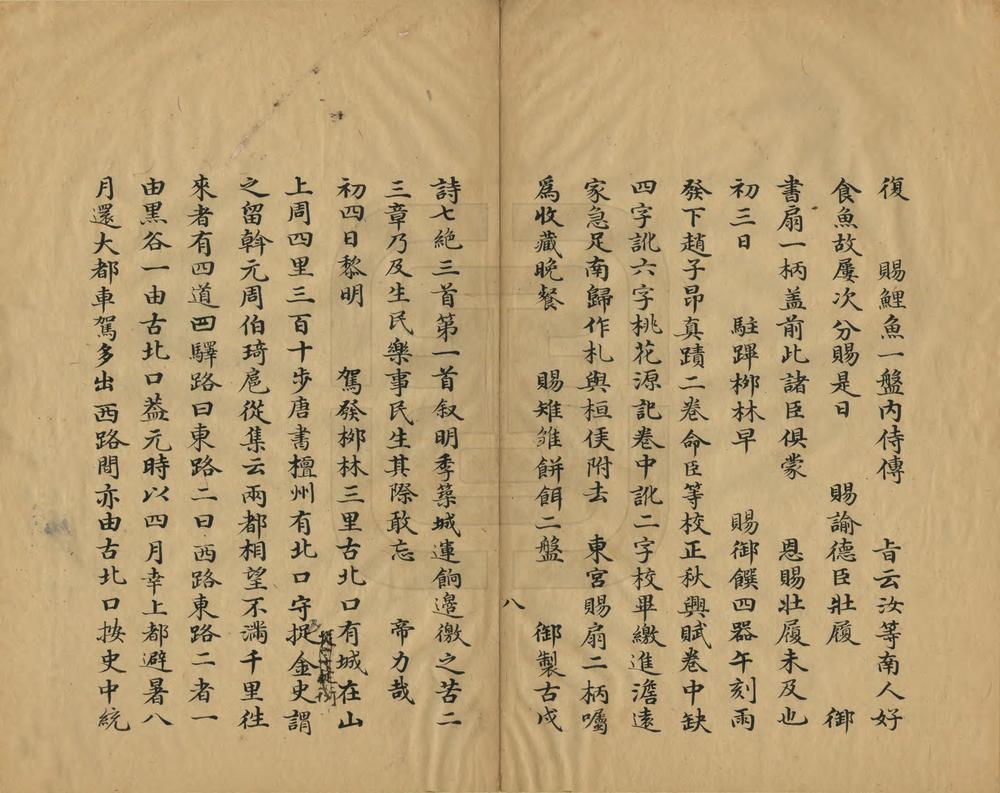 復　賜鯉魚一盤內侍傳　旨云汝等南人好
食魚故屢次分賜是日　賜諭德臣壯履　御
書扇一柄盖前此諸臣俱蒙　恩賜壯履未及也
初三日　駐蹕栁林早　賜御饌四器午刻雨
發下趙子昂真蹟二卷命臣等校正秋興賦卷中缺
四字訛六字桃花源記卷中訛二字校畢繳進澹遠
家急足南歸作札與桓侯附去　東宮賜扇二柄囑
爲收藏晚餐　賜雉雏餅餌二盤　御製古戍
八
詩七絶三首第一首叙明季築城運餉邊徼之苦二
三章乃及生民樂事民生其際敢忘　帝力哉
初四日黎明　駕發栁林三里古北口有城在山
上周四里三百十步唐書檀州有北口守捉金史謂
之留斡元周伯琦扈從集云兩都相望不滿千里徃
來者有四道曰驛路曰東路二曰西路東路二者一
由黑谷一由古北口葢元時以四月幸上都避暑八
月還大都車駕多出西路間亦由古北口按史中統